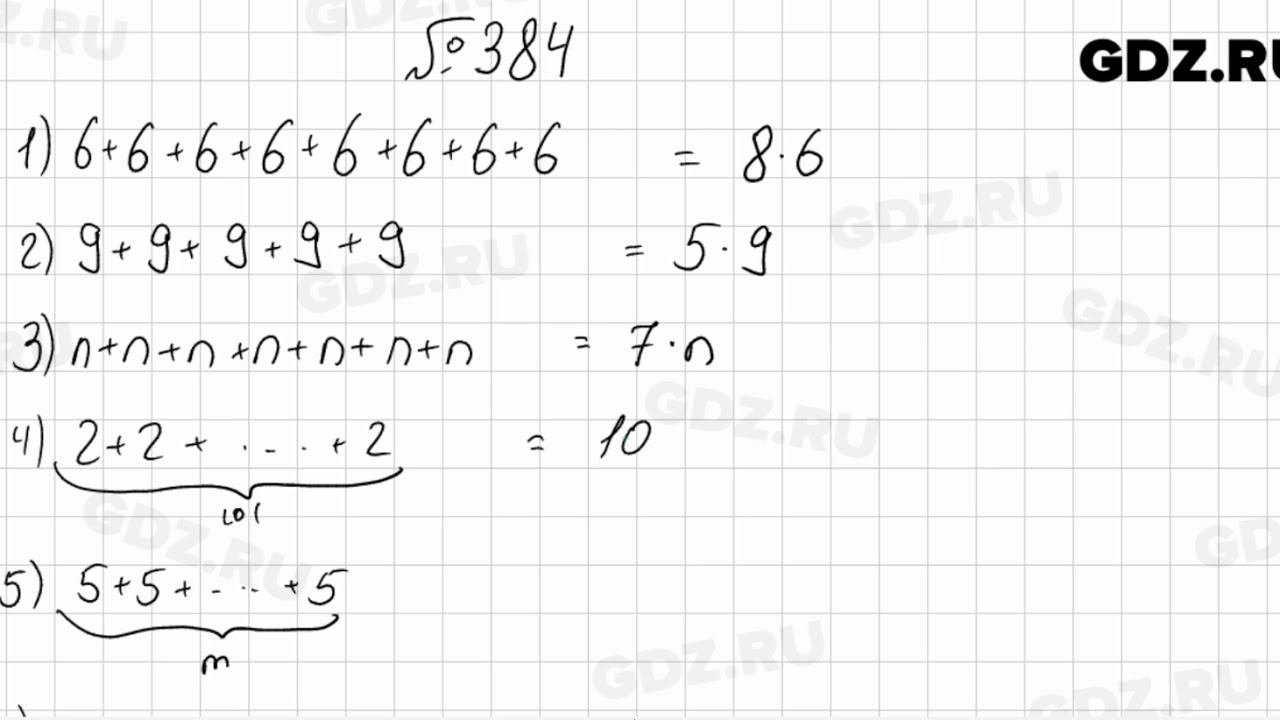 №384
GDZ.RU
1) 6+6+6+6+6+6+6+6 = 8·6
2) 9+9+9+9+9 = 5·9
3) n+n+n+n+n+n+n = 7·n
4) 2+2+...+2 = 10
101
5) 5+5+...+5
m